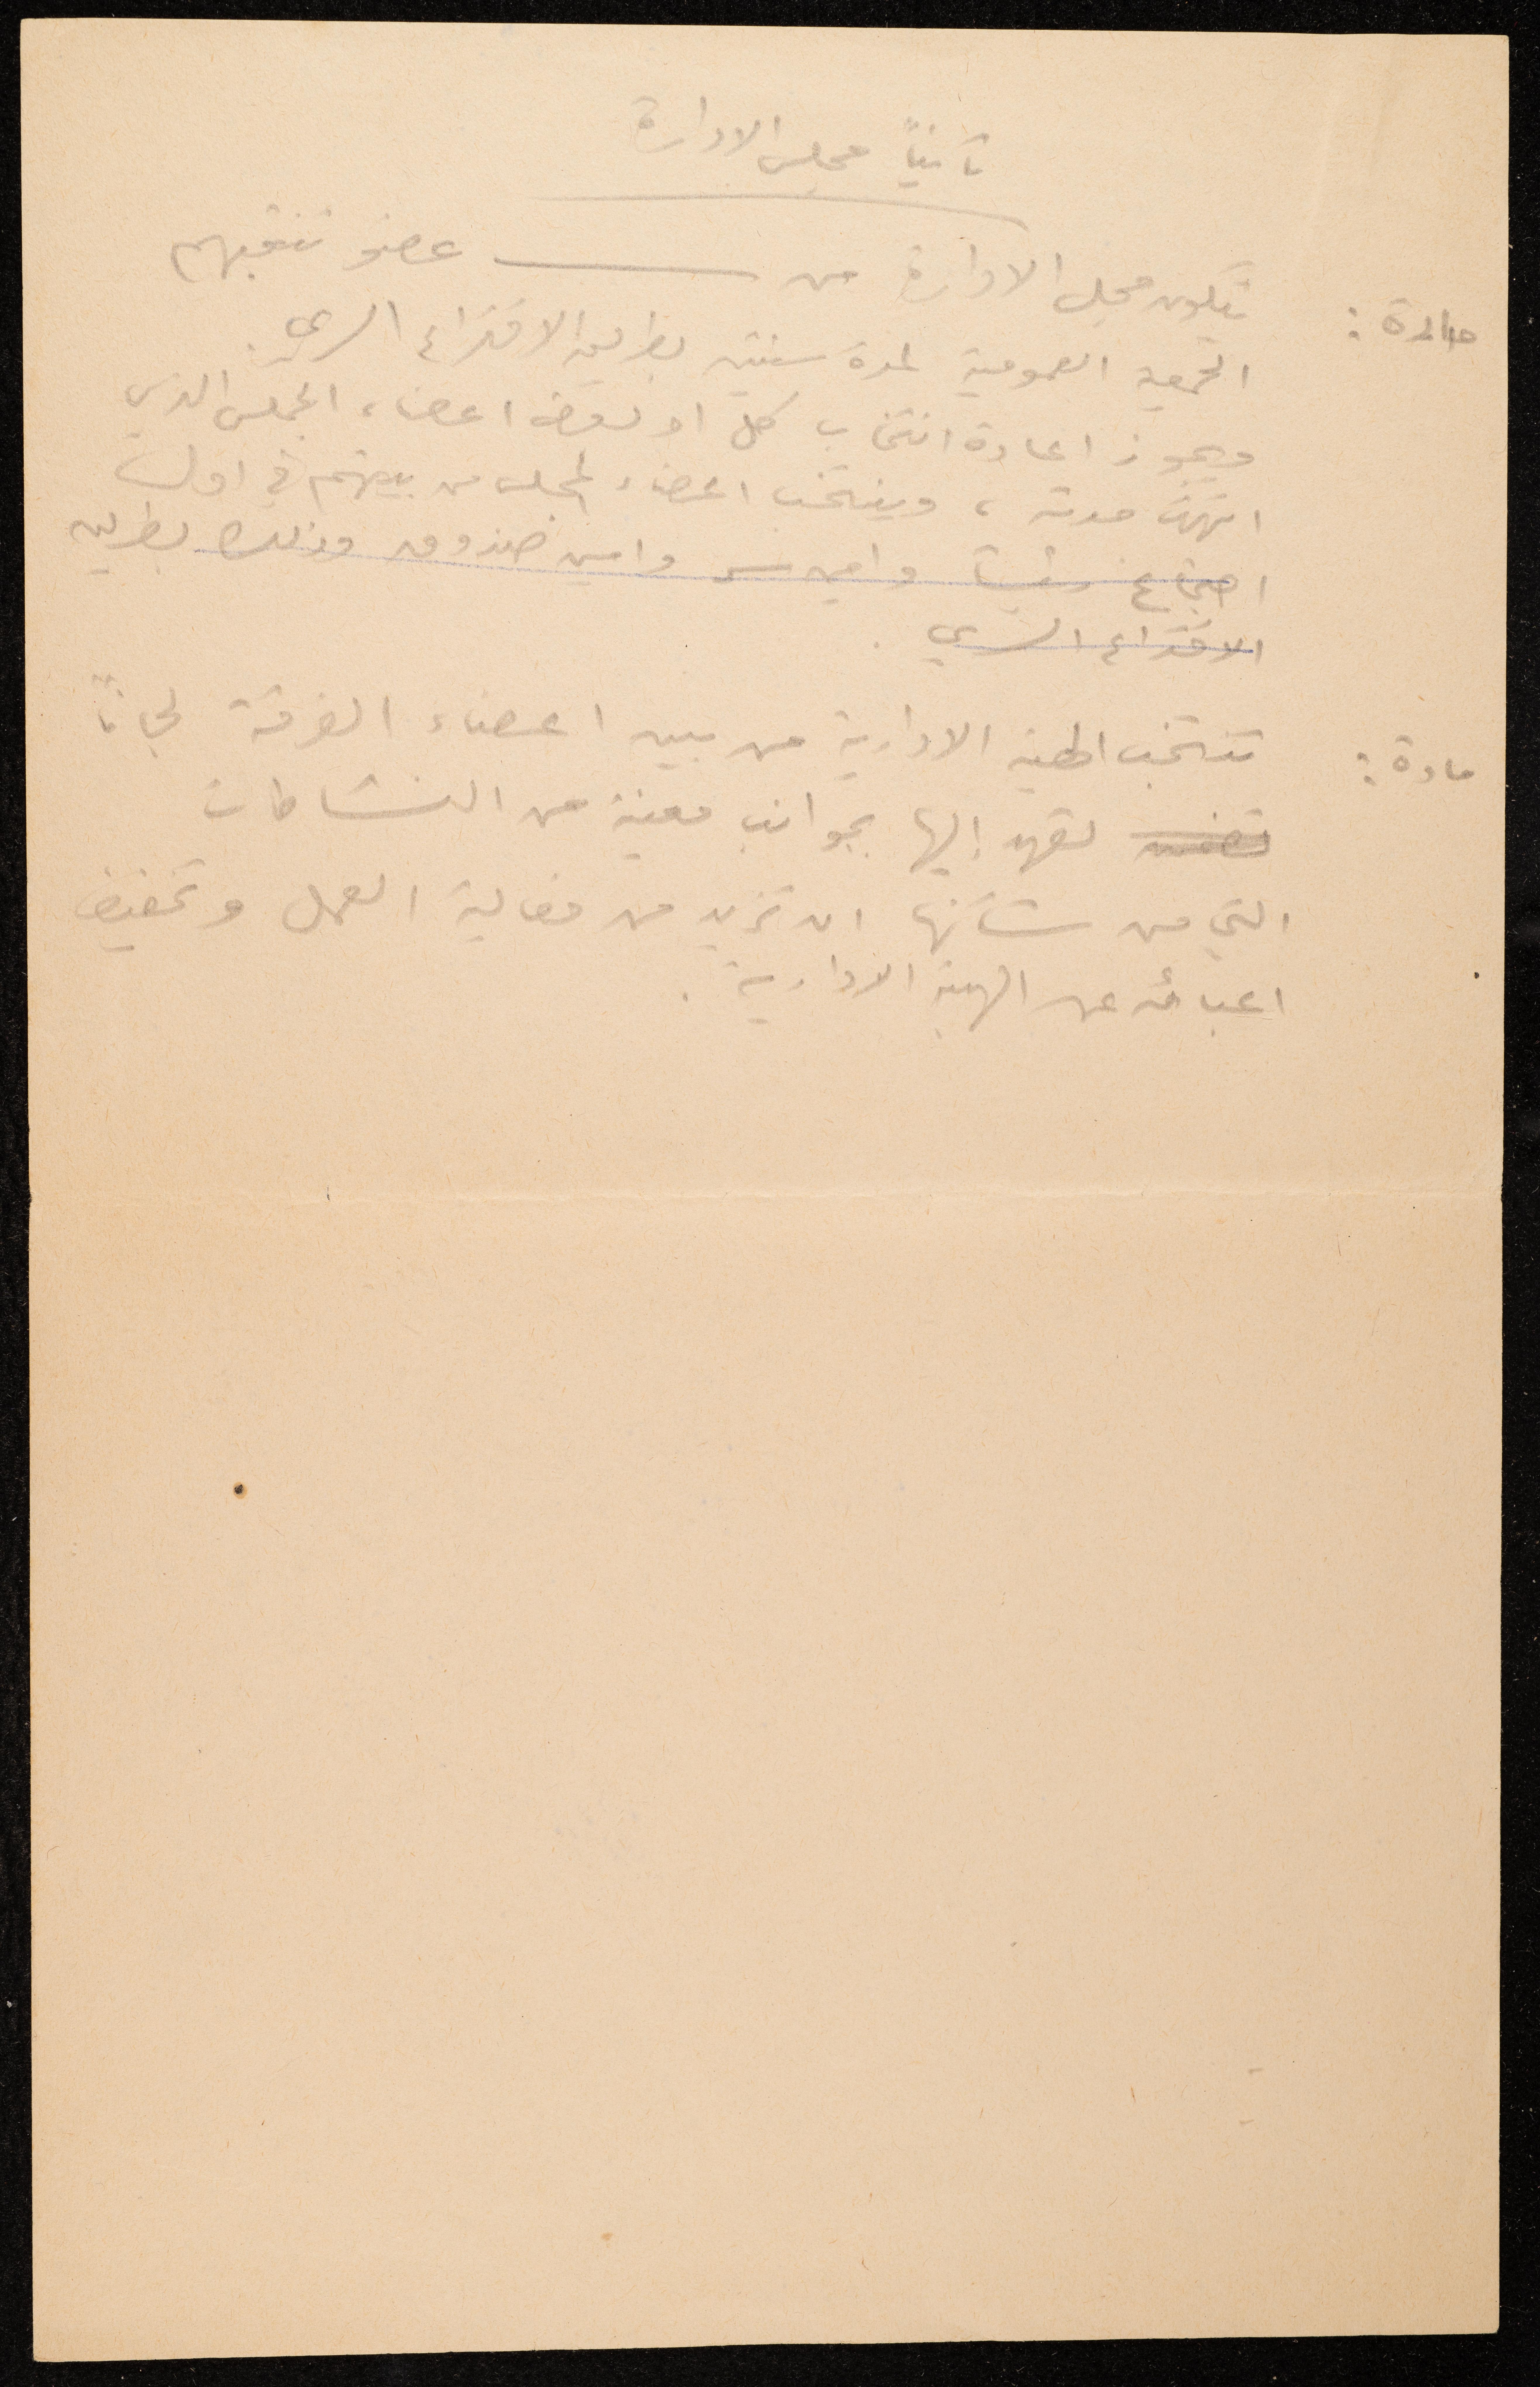 ثانياً مجلس الادارة
مادة : يتكون مجلس الادارة من ـــــــ عضو تنتخبهم
الجمعية العمومية لمدة سنتين بطريق الاقتراع السري .
ويجوز اعادة انتخاب كل او بعض اعضاء المجلس الذي
انتهت مدته ، وينتخب اعضاء المجلس من بينهم في اول
اجتماع رئيساً وامين سر وامين صندوق وذلك بطريق
الاقتراع السري .
مادة : تنتخب الهيئة الادارية من بين اعضاء الفرقة لجاناً
تعهد إليها بجوانب معينة من النشاطات
التي من شأنها ان تزيد من فعالية العمل وتخفيف
اعبائه عن الهيئة الادارية .